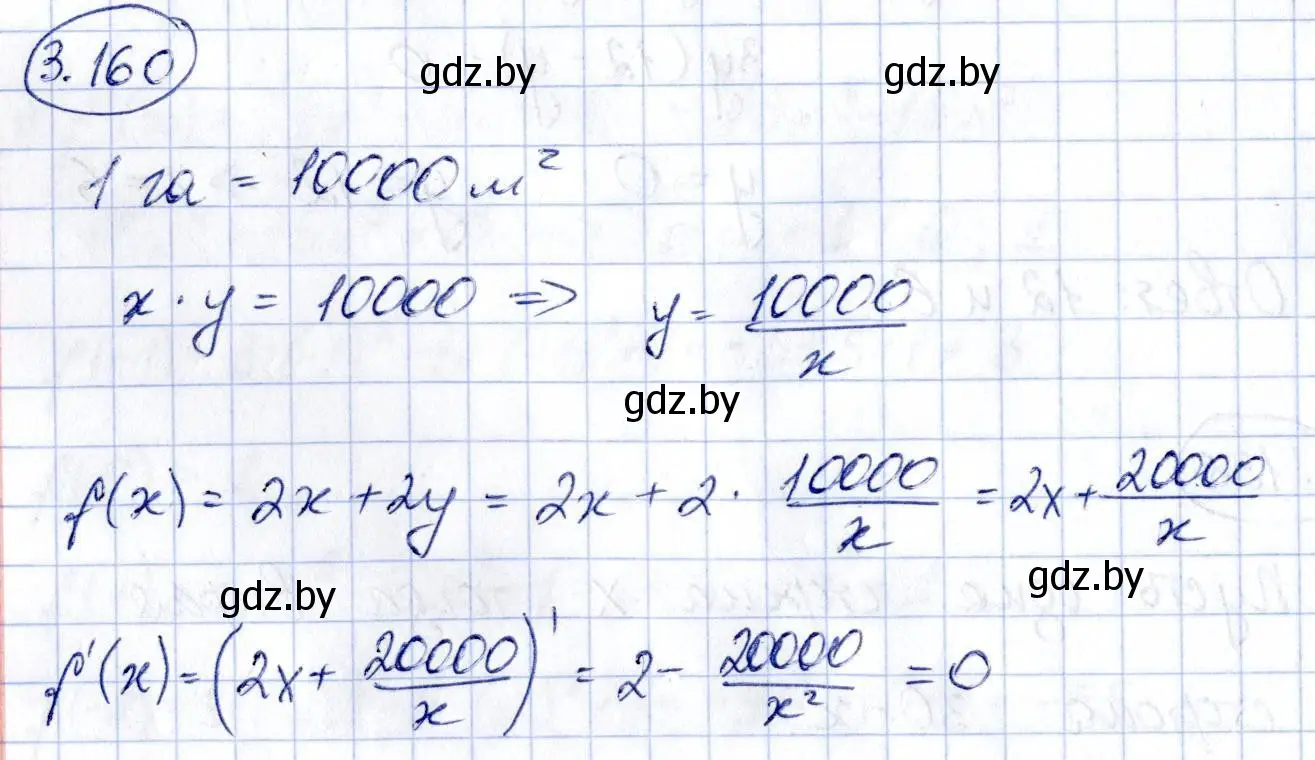 3.160
gdz.by gdz.by
1 га = 10000 м²
x · y = 10000 => y = 10000/x
gdz.by
f(x) = 2x + 2y = 2x + 2 · 10000/x = 2x + 20000/x
gdz.by gdz.by
f'(x) = (2x + 20000/x)' = 2 - 20000/x² = 0